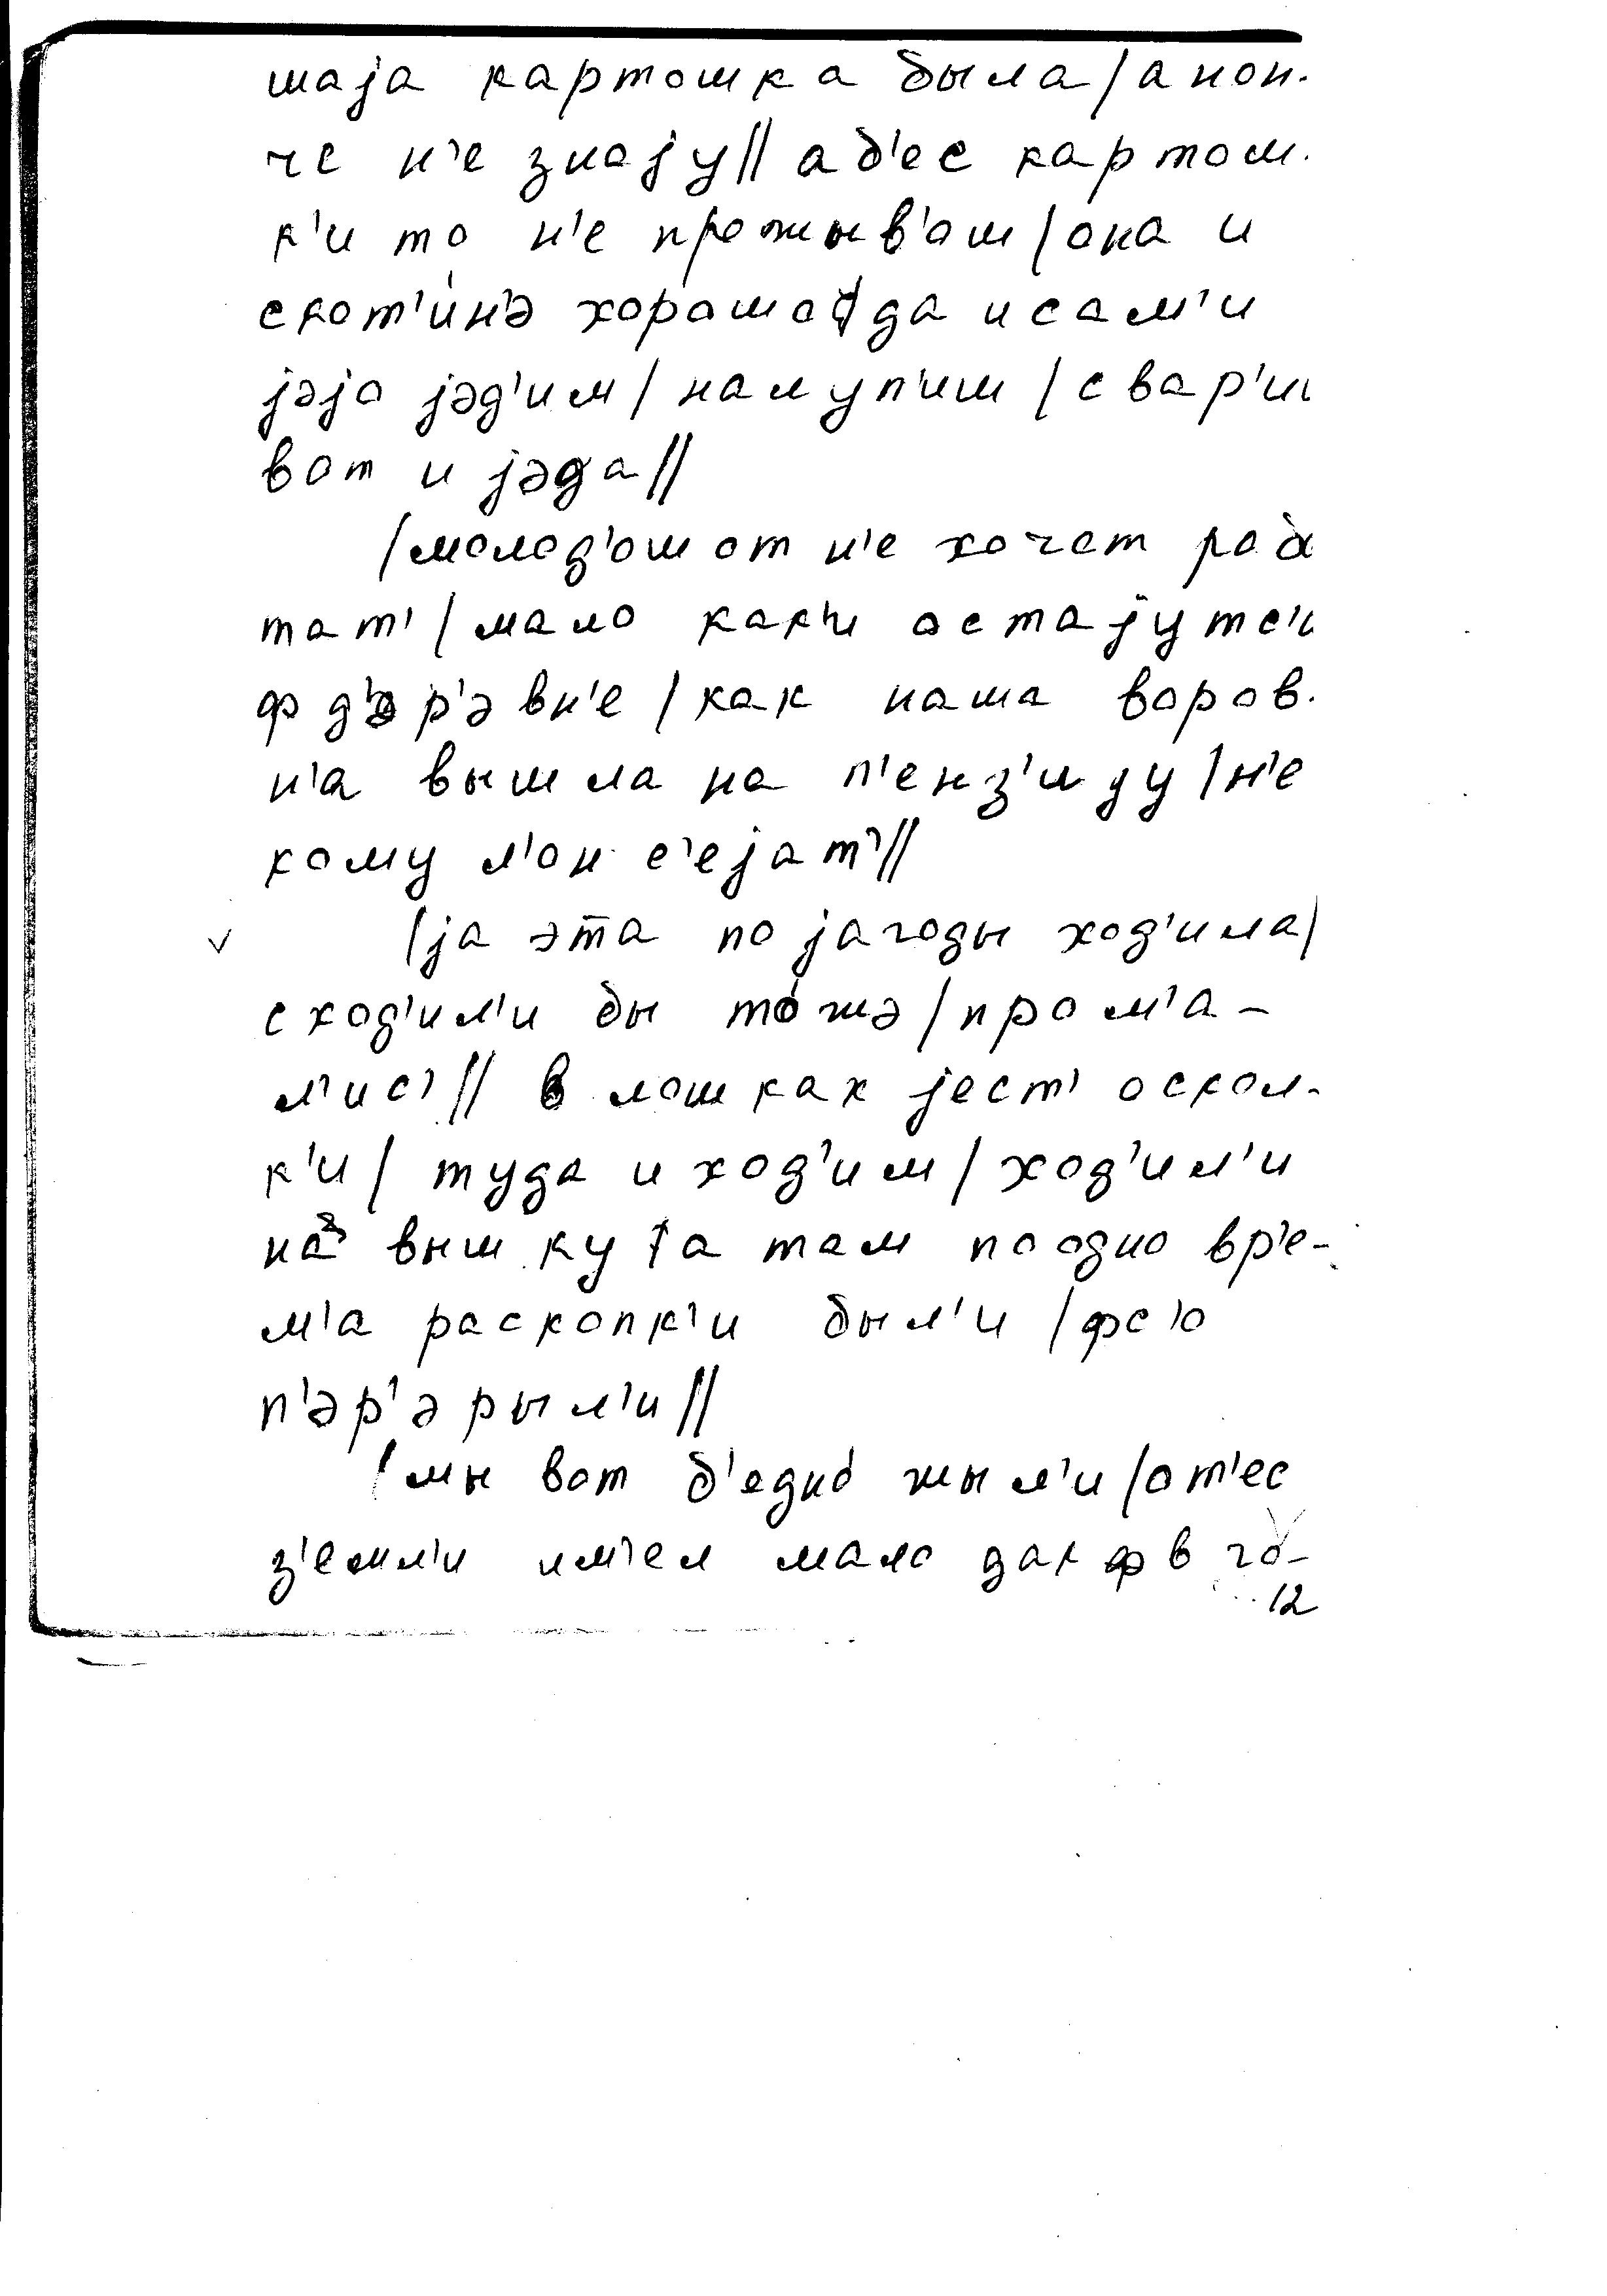 шаја картошка была/а нон-
че н'е знају// а б'ес картош-
к'и то н'е прожыв'ош/она и
скот'ин'э хорошо/да и сам'и
јэјо јэд'им/налуп'иш/свар'иш
вот и јэда//
/молод'ошот н'е хочет рабо
тат'/мало как'и остајутс'и
ф д'эр'эвн'е/как наша воров-
н'а вышла на п'енз'иjу/н'е
кому л'он с'ејат'//
/ја эта по јагоды ход'ила/
сход'ил'и бы тожэ/пром'а-
л'ис'// в лошках јест' оскол-
к'и/туда и ход'им/ход'ил'и
на вышку/а там по одно вр'е-
м'а раскопк'и был'и/фс'о
п'эр'эрыл'и//
/мы вот б'едно жыл'и/от'ес
з'емл'и им'ел мало дак в го-
12